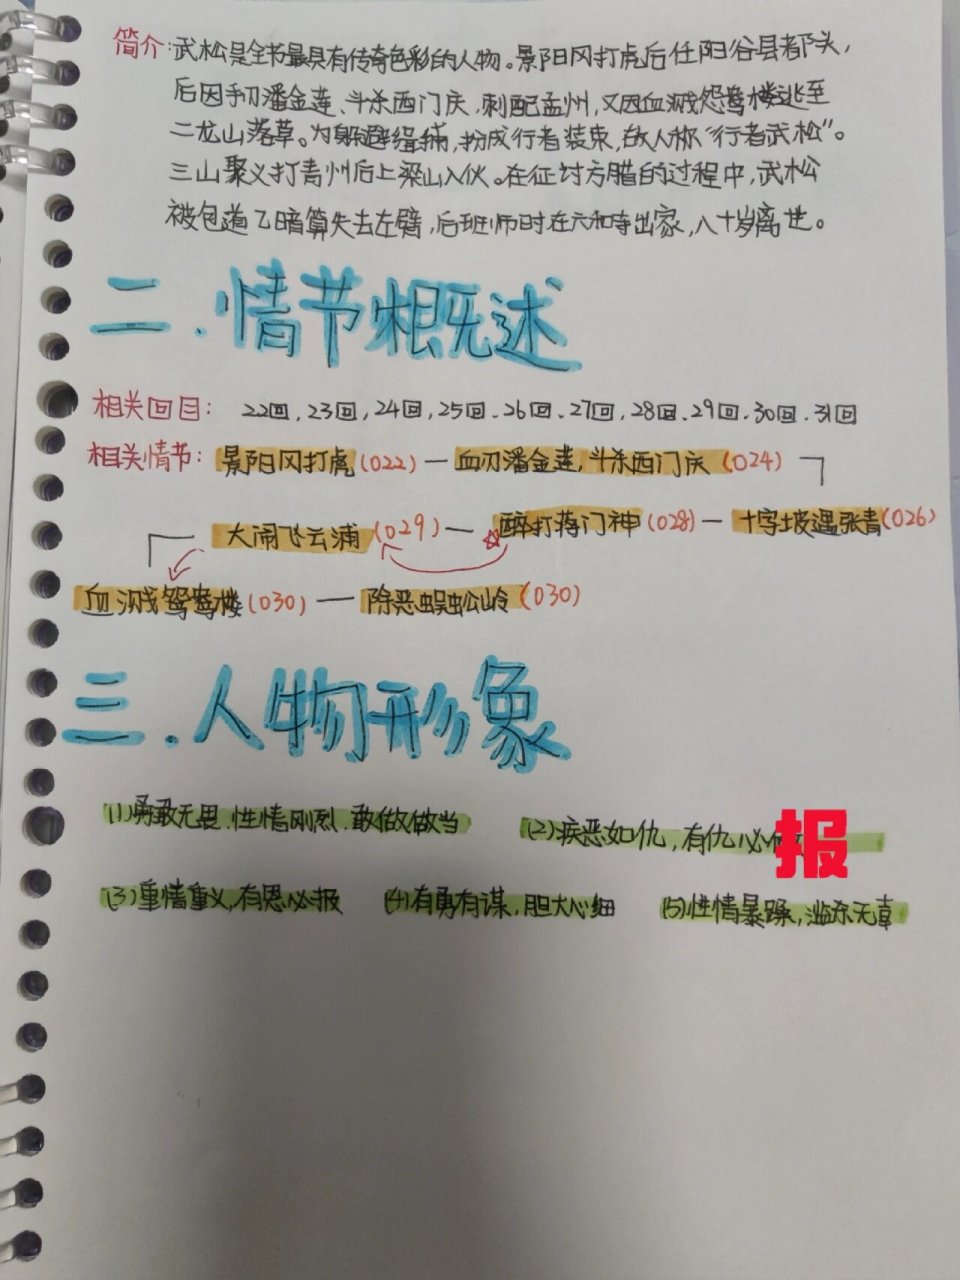 简介：武松是全书最具有传奇色彩的人物。景阳冈打虎后任阳谷县都头，
后因手刃潘金莲、斗杀西门庆，刺配孟州，又因血溅鸳鸯楼逃至
二龙山落草。为躲避缉捕，扮成行者装束，故人称“行者武松”。
三山聚义打青州后上梁山入伙。在征讨方腊的过程中，武松
被包道乙暗算失去左臂，后班师时在六和寺出家，八十岁离世。
二.情节概述
相关回目：22回.23回,24回,25回.26回.27回,28回.29回.30回.31回
相关情节：景阳冈打虎(022)—血刃潘金莲,斗杀西门庆(024)
大闹飞云浦(029)—醉打蒋门神(028)—十字坡遇张青(026)
血溅鸳鸯楼(030)—除恶蜈蚣岭(030)
三.人物形象
(1)勇敢无畏.性情刚烈.敢做做当 (2)疾恶如仇，有仇必报
(3)重情重义,有恩必报 (4)有勇有谋，胆大心细 (5)性情暴躁,滥杀无辜